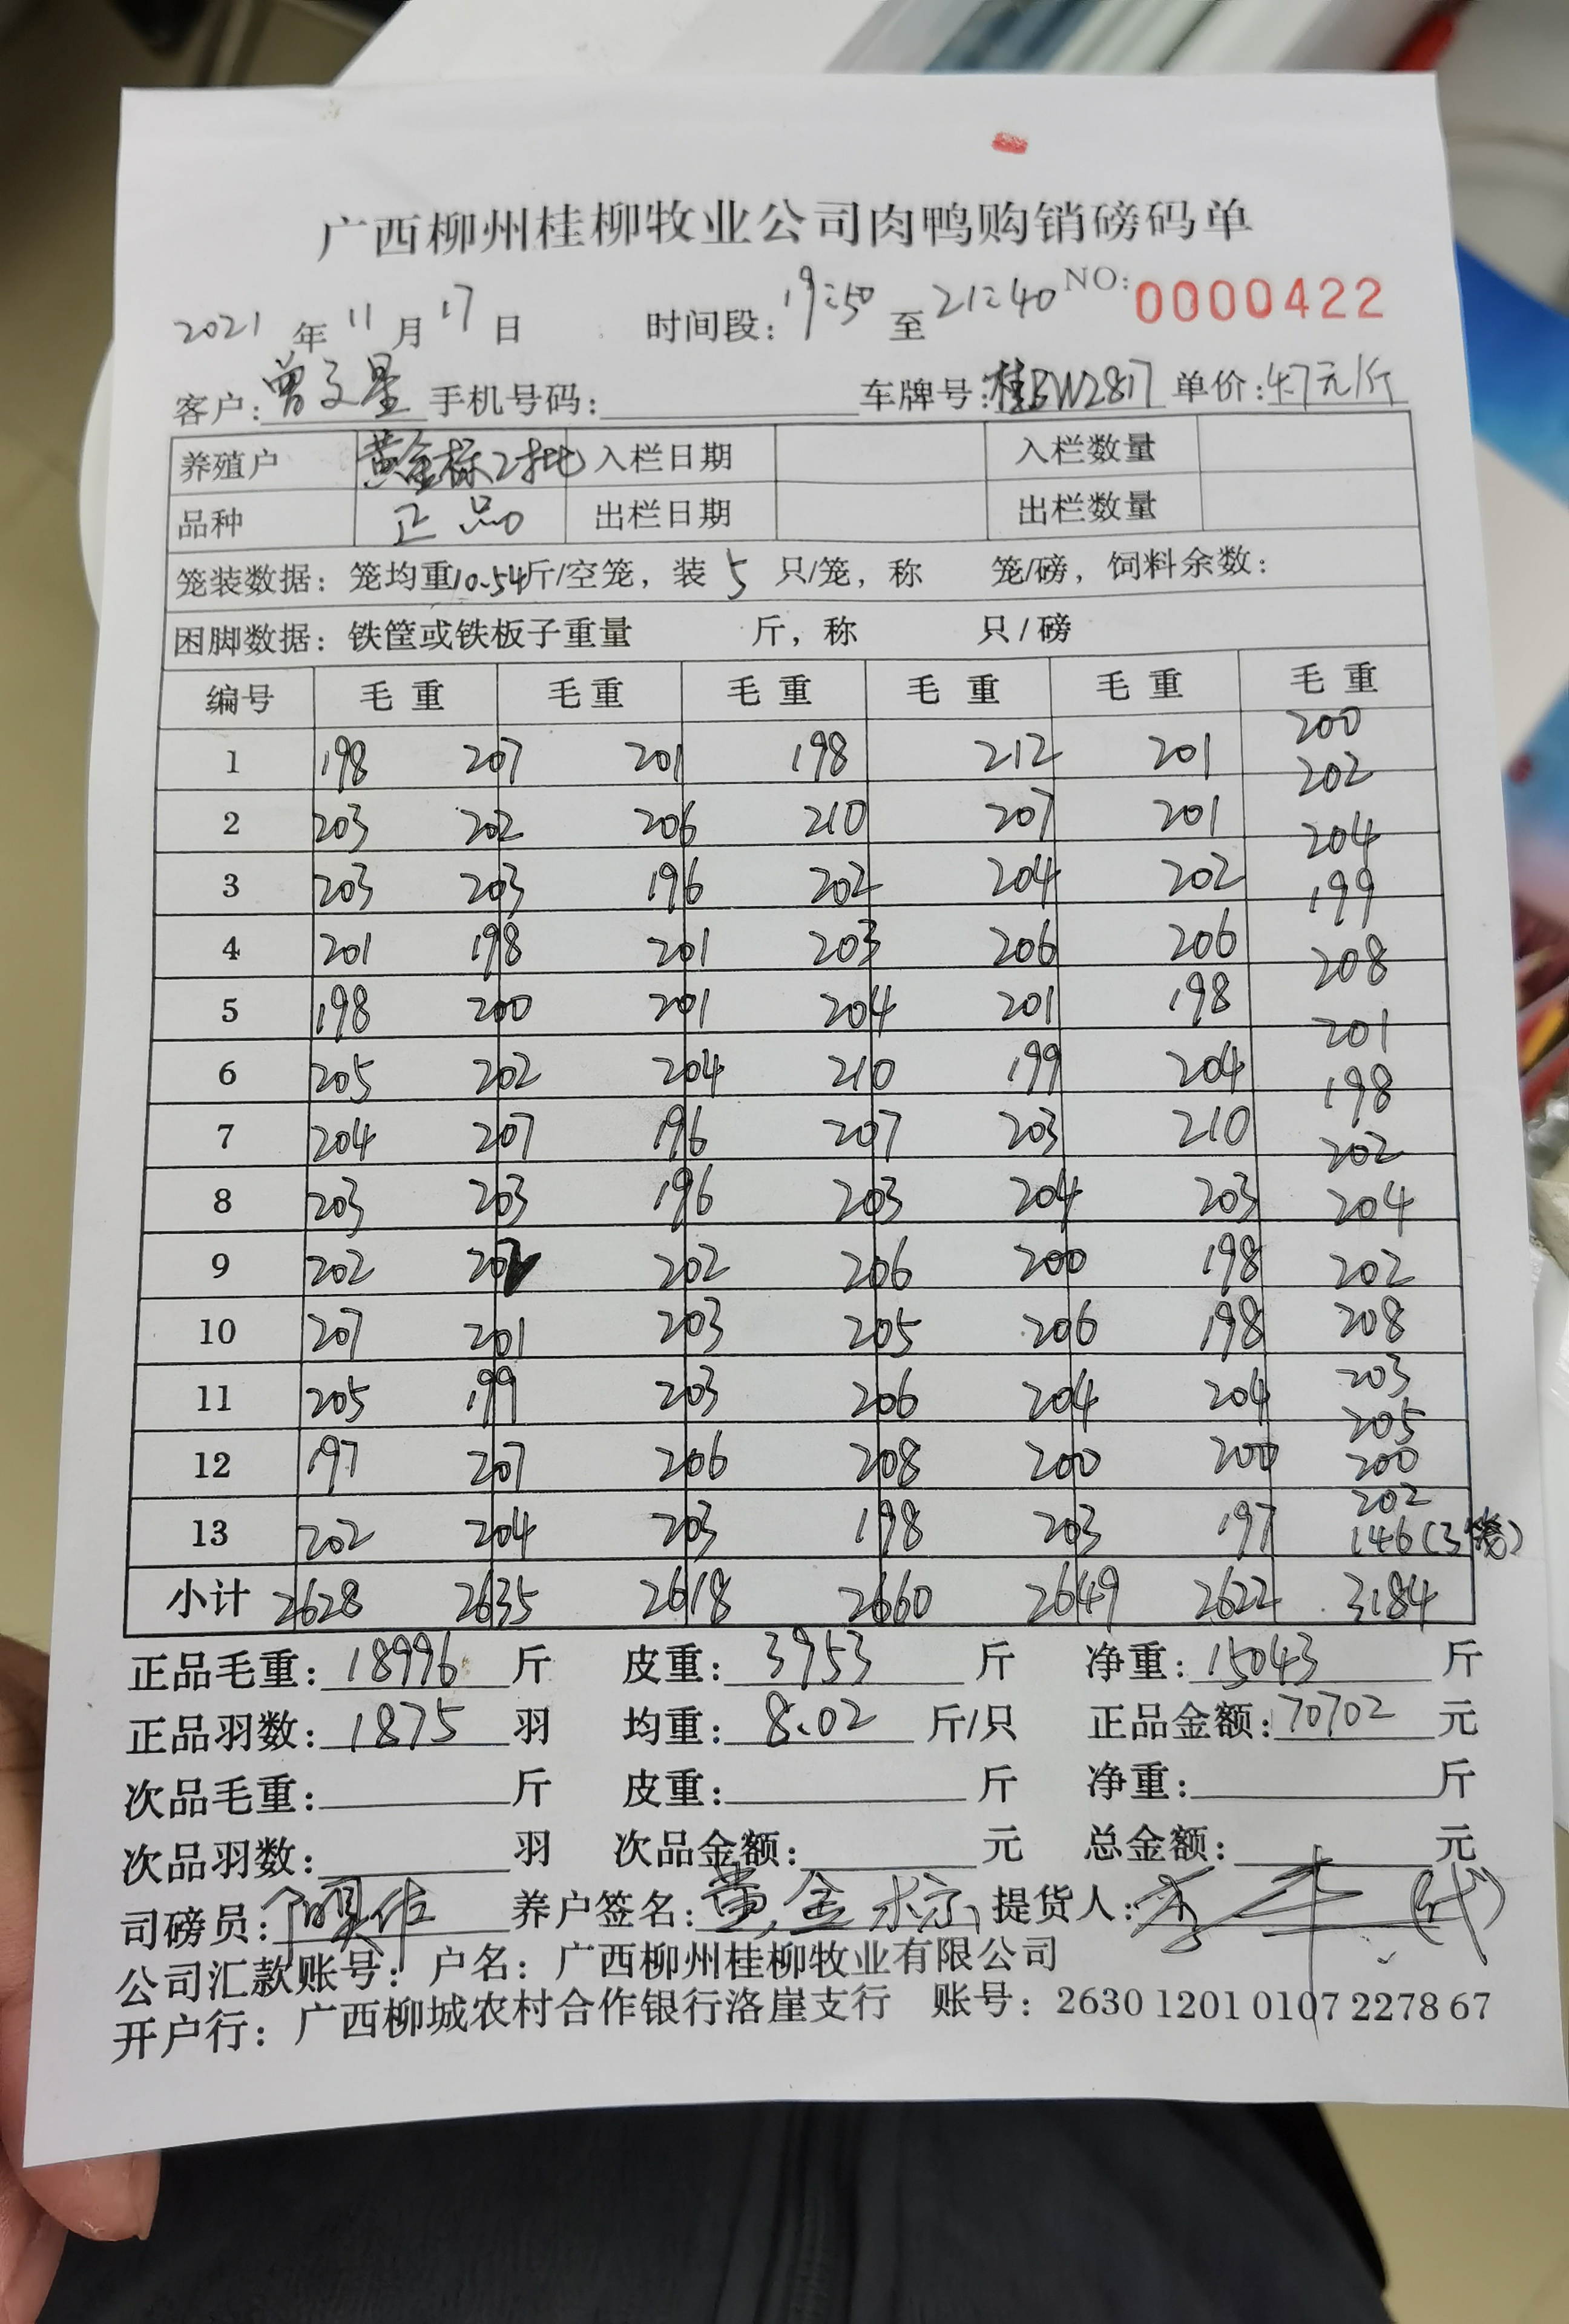 广西柳州桂柳牧业公司肉鸭购销磅码单
2021 年 11 月 17 日 时间段：19:50 至 21:40 NO: 0000422
客户：曾文星 手机号码： 车牌号：桂BW2817 单价：4.7元/斤
养殖户 黄金标2批 入栏日期 入栏数量
品种 正品 出栏日期 出栏数量
笼装数据：笼均重10.54斤/空笼，装 5 只/笼，称 笼/磅，饲料余数：
困脚数据：铁筐或铁板子重量 斤，称 只/磅
编号 毛重 毛重 毛重 毛重 毛重 毛重
200
1 198 207 201 198 212 201 202
2 203 202 206 210 207 201 204
3 203 203 196 202 204 202 199
4 201 198 201 203 206 206 208
5 198 200 201 204 201 198 201
6 205 202 204 210 199 204 198
7 204 207 196 207 203 210 202
8 203 203 196 203 204 203 204
9 202 202 202 206 200 198 202
10 207 201 203 205 206 198 208
11 205 199 203 206 204 204 203
205
12 197 207 206 208 200 200 200
202
13 202 204 203 198 203 197 146(3笼)
小计 2628 2635 2618 2660 2649 2622 3184
正品毛重：18996 斤 皮重：3953 斤 净重：15043 斤
正品羽数：1875 羽 均重：8.02 斤/只 正品金额：70702 元
次品毛重： 斤 皮重： 斤 净重： 斤
次品羽数： 羽 次品金额： 元 总金额： 元
司磅员： 养户签名：黄金标 提货人：李 (代)
公司汇款账号：户名：广西柳州桂柳牧业有限公司
开户行：广西柳城农村合作银行洛崖支行 账号：2630 1201 0107 2278 67